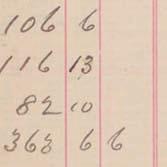 106 6
116 13
82 10
363 6 6